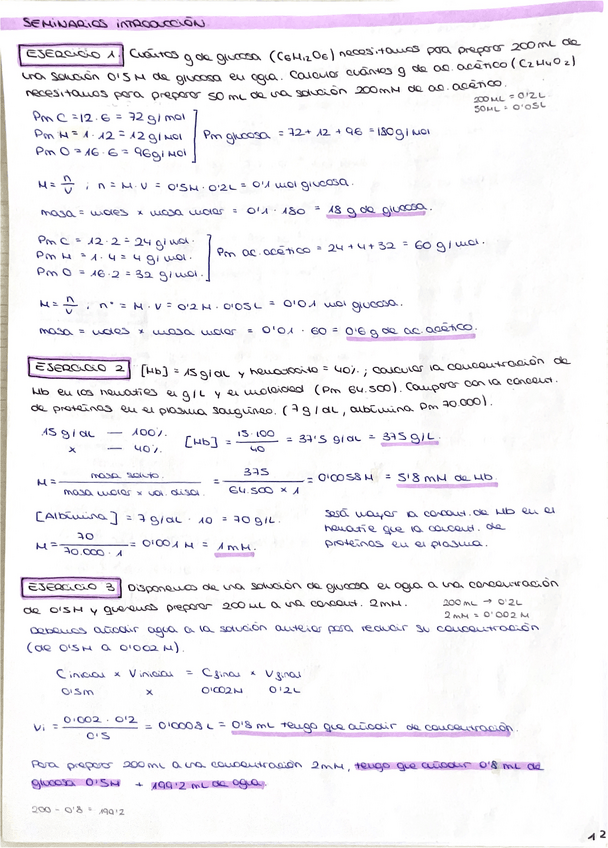 SEMINARIOS INTRODUCCIÓN
EJERCICIO 1. Cuántos g de glucosa (C6H12O6) necesitamos para preparar 200mL de
una solución 0'5M de glucosa en agua. Calcular cuántos g de ac. acético (C2H4O2)
necesitamos para preparar 50 mL de una solución 200mM de ac. acético.
200mL = 0'2L
50mL = 0'05L
Pm C = 12·6 = 72g/mol
Pm H = 1·12 = 12g/mol
Pm O = 16·6 = 96g/mol
Pm glucosa = 72+12+96 = 180g/mol
M = n/V ; n = M·V = 0'5M·0'2L = 0'1 mol glucosa.
masa = moles x masa molar = 0'1 · 180 = 18 g de glucosa.
Pm C = 12·2 = 24g/mol.
Pm H = 1·4 = 4g/mol.
Pm O = 16·2 = 32 g/mol.
Pm ac. acético = 24+4+32 = 60 g/mol.
M = n/V ; nº = M·V = 0'2M·0'05L = 0'01 mol glucosa.
masa = moles x masa molar = 0'01 · 60 = 0'6g de ac. acético.
EJERCICIO 2 [Hb] = 15g/dL y hematocito = 40%; calcular la concentración de
Hb en los hematíes en g/L y en molaridad (Pm 64.500). Comparar con la concent.
de proteínas en el plasma sanguíneo. (7g/dL, albúmina Pm 70.000).
15 g/dL — 100%
x — 40%
[Hb] = 15·100/40 = 37'5 g/dL = 375 g/L.
M = masa soluto/masa molar x vol. disol. = 375/64.500 x 1 = 0'0058M = 5'8 mM de Hb.
[Albúmina] = 7g/dL · 10 = 70g/L.
M = 70/70.000·1 = 0'001 M = 1 mM.
Será mayor la concent. de Hb en el
hematíe que la concent. de
proteínas en el plasma.
EJERCICIO 3 Disponemos de una solución de glucosa en agua a una concentración
de 0'5M y queremos preparar 200mL a una concent. 2mM.
200mL → 0'2L
2mM = 0'002M
Debemos añadir agua a la solución anterior para reducir su concentración
(de 0'5M a 0'002M).
Cinicial x Vinicial = Cfinal x Vfinal
0'5M x 0'002M 0'2L
Vi = 0'002·0'2/0'5 = 0'0008L = 0'8 mL tengo que añadir de concentración.
Para preparar 200mL a una concentración 2mM, tengo que añadir 0'8 mL de
glucosa 0'5M + 199'2 mL de agua.
200 - 0'8 = 199'2
12